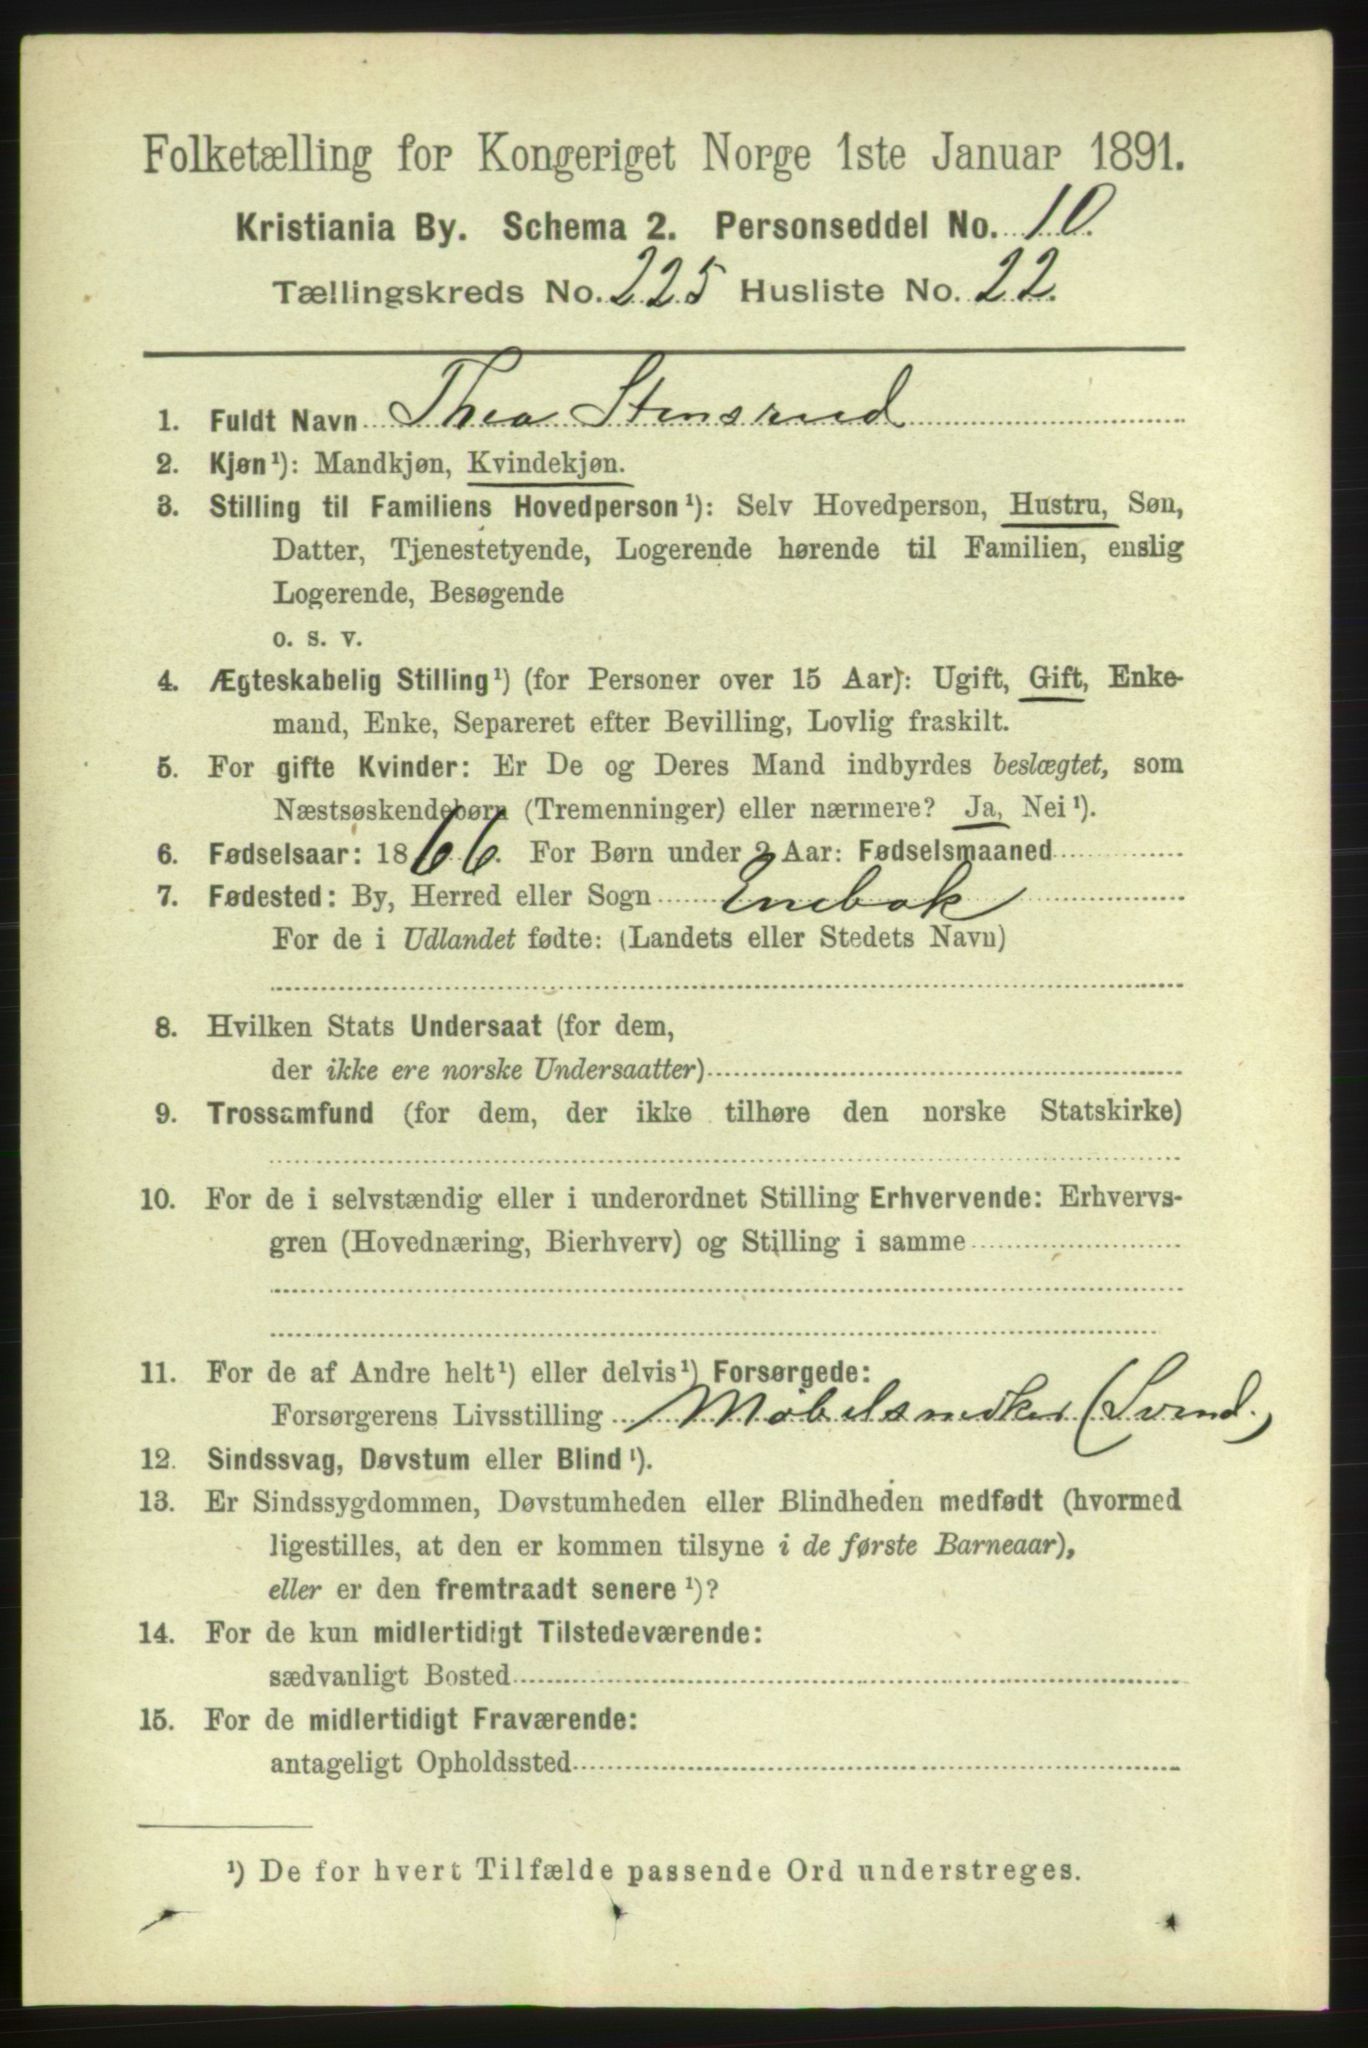 Folketælling for Kongeriget Norge 1ste Januar 1891.
Kristiania By. Schema 2. Personseddel No. 10.
Tællingskreds No. 225 Husliste No. 22.
1. Fuldt Navn Thea Stensrud
2. Kjøn¹): Mandkjøn, Kvindekjøn.
3. Stilling til Familiens Hovedperson¹): Selv Hovedperson, Hustru, Søn,
Datter, Tjenestetyende, Logerende hørende til Familien, enslig
Logerende, Besøgende
o. s. v.
4. Ægteskabelig Stilling¹) (for Personer over 15 Aar): Ugift, Gift, Enke-
mand, Enke, Separeret efter Bevilling, Lovlig fraskilt.
5. For gifte Kvinder: Er De og Deres Mand indbyrdes beslægtet, som
Næstsøskendebørn (Tremenninger) eller nærmere? Ja, Nei¹).
6. Fødselsaar: 1866. For Børn under 2 Aar: Fødselsmaaned
7. Fødested: By, Herred eller Sogn Enebak
For de i Udlandet fødte: (Landets eller Stedets Navn)
8. Hvilken Stats Undersaat (for dem,
der ikke ere norske Undersaatter)
9. Trossamfund (for dem, der ikke tilhøre den norske Statskirke)
10. For de i selvstændig eller i underordnet Stilling Erhvervende: Erhvervs-
gren (Hovednæring, Bierhverv) og Stilling i samme
11. For de af Andre helt¹) eller delvis¹) Forsørgede:
Forsørgerens Livsstilling Møbelsnedker (Svend.)
12. Sindssvag, Døvstum eller Blind¹).
13. Er Sindssygdommen, Døvstumheden eller Blindheden medfødt (hvormed
ligestilles, at den er kommen tilsyne i de første Barneaar),
eller er den fremtraadt senere¹)?
14. For de kun midlertidigt Tilstedeværende:
sædvanligt Bosted
15. For de midlertidigt Fraværende:
antageligt Opholdssted
¹) De for hvert Tilfælde passende Ord understreges.